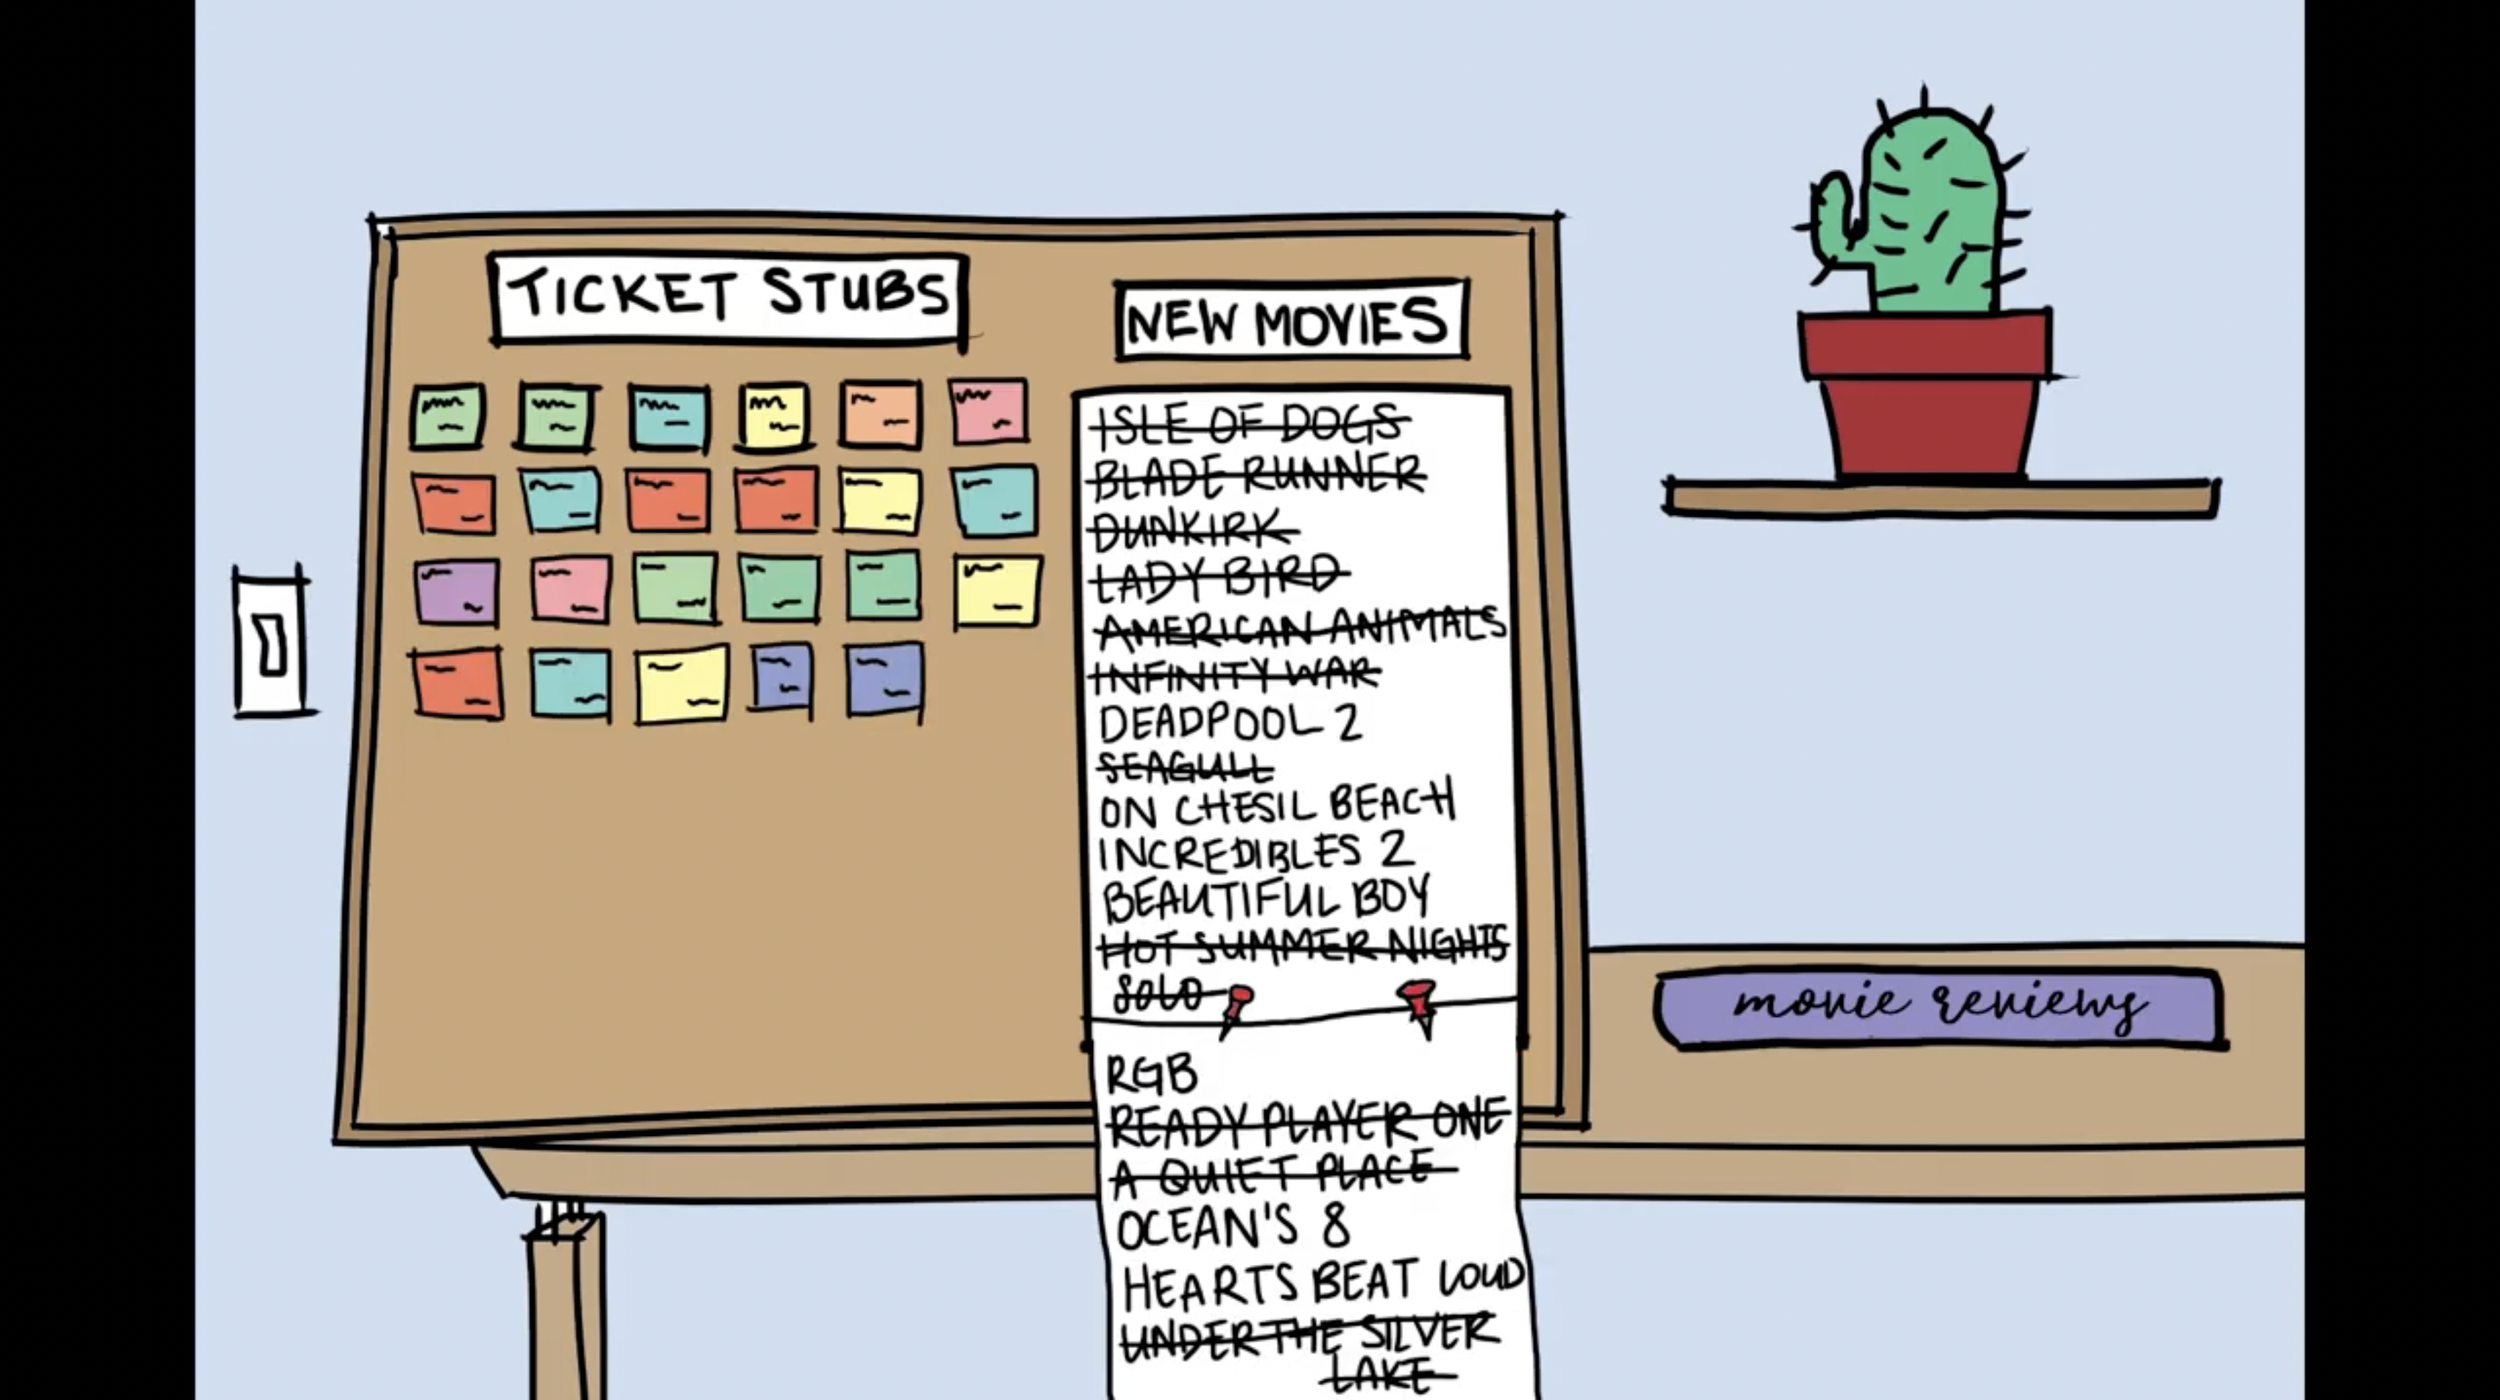 TICKET STUBS
NEW MOVIES
ISLE OF DOGS
BLADE RUNNER
DUNKIRK
LADY BIRD
AMERICAN ANIMALS
INFINITY WAR
DEADPOOL 2
SEAGULL
ON CHESIL BEACH
INCREDIBLES 2
BEAUTIFUL BOY
HOT SUMMER NIGHTS
SOLO
RGB
READY PLAYER ONE
A QUIET PLACE
OCEAN'S 8
HEARTS BEAT LOUD
UNDER THE SILVER
LAKE
movie reviews